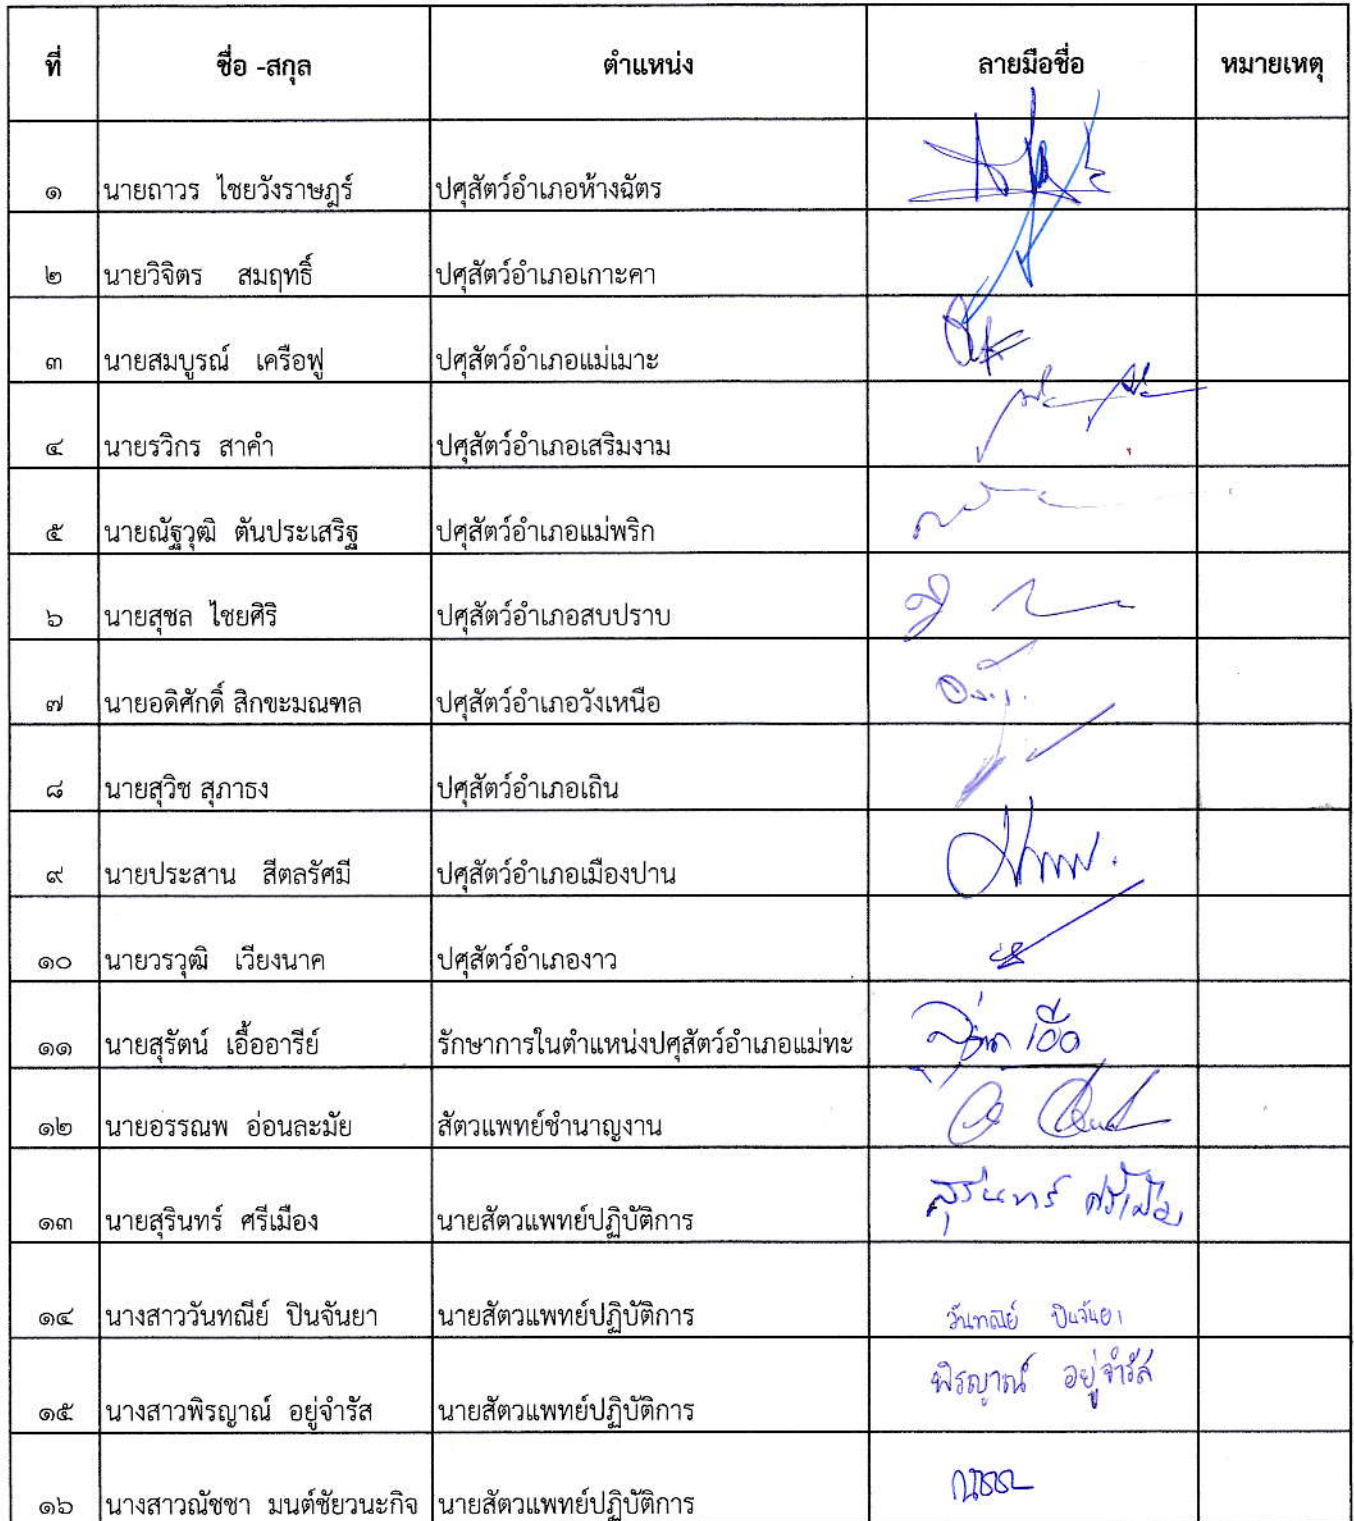 ที่ ชื่อ -สกุล ตำแหน่ง ลายมือชื่อ หมายเหตุ
๑ นายถาวร ไชยวังราษฎร์ ปศุสัตว์อำเภอห้างฉัตร
๒ นายวิจิตร สมฤทธิ์ ปศุสัตว์อำเภอเกาะคา
๓ นายสมบูรณ์ เครือฟู ปศุสัตว์อำเภอแม่เมาะ
๔ นายรวิกร สาคำ ปศุสัตว์อำเภอเสริมงาม
๕ นายณัฐวุฒิ ตันประเสริฐ ปศุสัตว์อำเภอแม่พริก
๖ นายสุชล ไชยศิริ ปศุสัตว์อำเภอสบปราบ
๗ นายอดิศักดิ์ สิกขะมณฑล ปศุสัตว์อำเภอวังเหนือ
๘ นายสุวิช สุภาธง ปศุสัตว์อำเภอเถิน
๙ นายประสาน สีตลรัศมี ปศุสัตว์อำเภอเมืองปาน
๑๐ นายวรวุฒิ เวียงนาค ปศุสัตว์อำเภองาว
๑๑ นายสุรัตน์ เอื้ออารีย์ รักษาการในตำแหน่งปศุสัตว์อำเภอแม่ทะ
๑๒ นายอรรณพ อ่อนละมัย สัตวแพทย์ชำนาญงาน
๑๓ นายสุรินทร์ ศรีเมือง นายสัตวแพทย์ปฏิบัติการ สุรินทร์ ศรีเมือง
๑๔ นางสาววันทณีย์ ปินจันยา นายสัตวแพทย์ปฏิบัติการ วันทณีย์ ปินจันยา
๑๕ นางสาวพิรญาณ์ อยู่จำรัส นายสัตวแพทย์ปฏิบัติการ พิรญาณ์ อยู่จำรัส
๑๖ นางสาวณัชชา มนต์ชัยวนะกิจ นายสัตวแพทย์ปฏิบัติการ